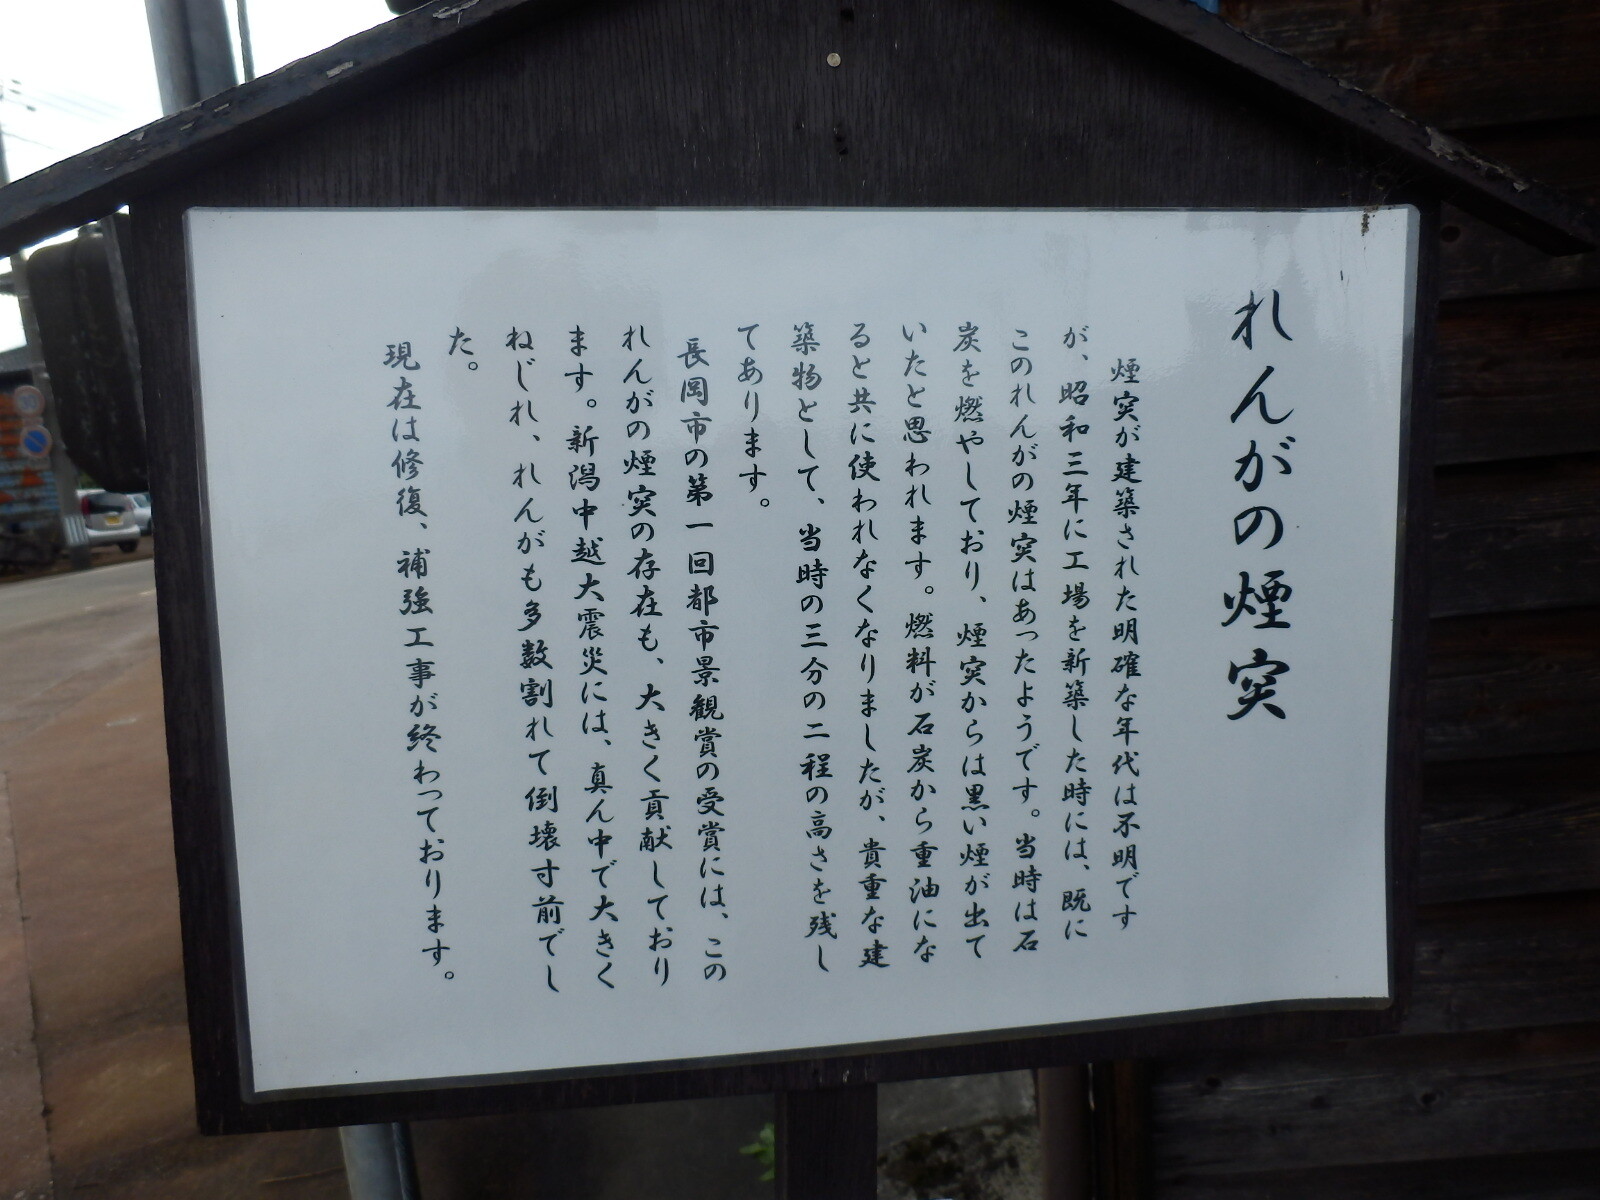 れんがの煙突
煙突が建築された明確な年代は不明です
が、昭和三年に工場を新築した時には、既に
このれんがの煙突はあったようです。当時は石
炭を燃やしており、煙突からは黒い煙が出て
いたと思われます。燃料が石炭から重油にな
ると共に使われなくなりましたが、貴重な建
築物として、当時の三分の二程の高さを残し
てあります。
長岡市の第一回都市景観賞の受賞には、この
れんがの煙突の存在も、大きく貢献しており
ます。新潟中越大震災には、真ん中で大きく
ねじれ、れんがも多数割れて倒壊寸前でし
た。
現在は修復、補強工事が終わっております。